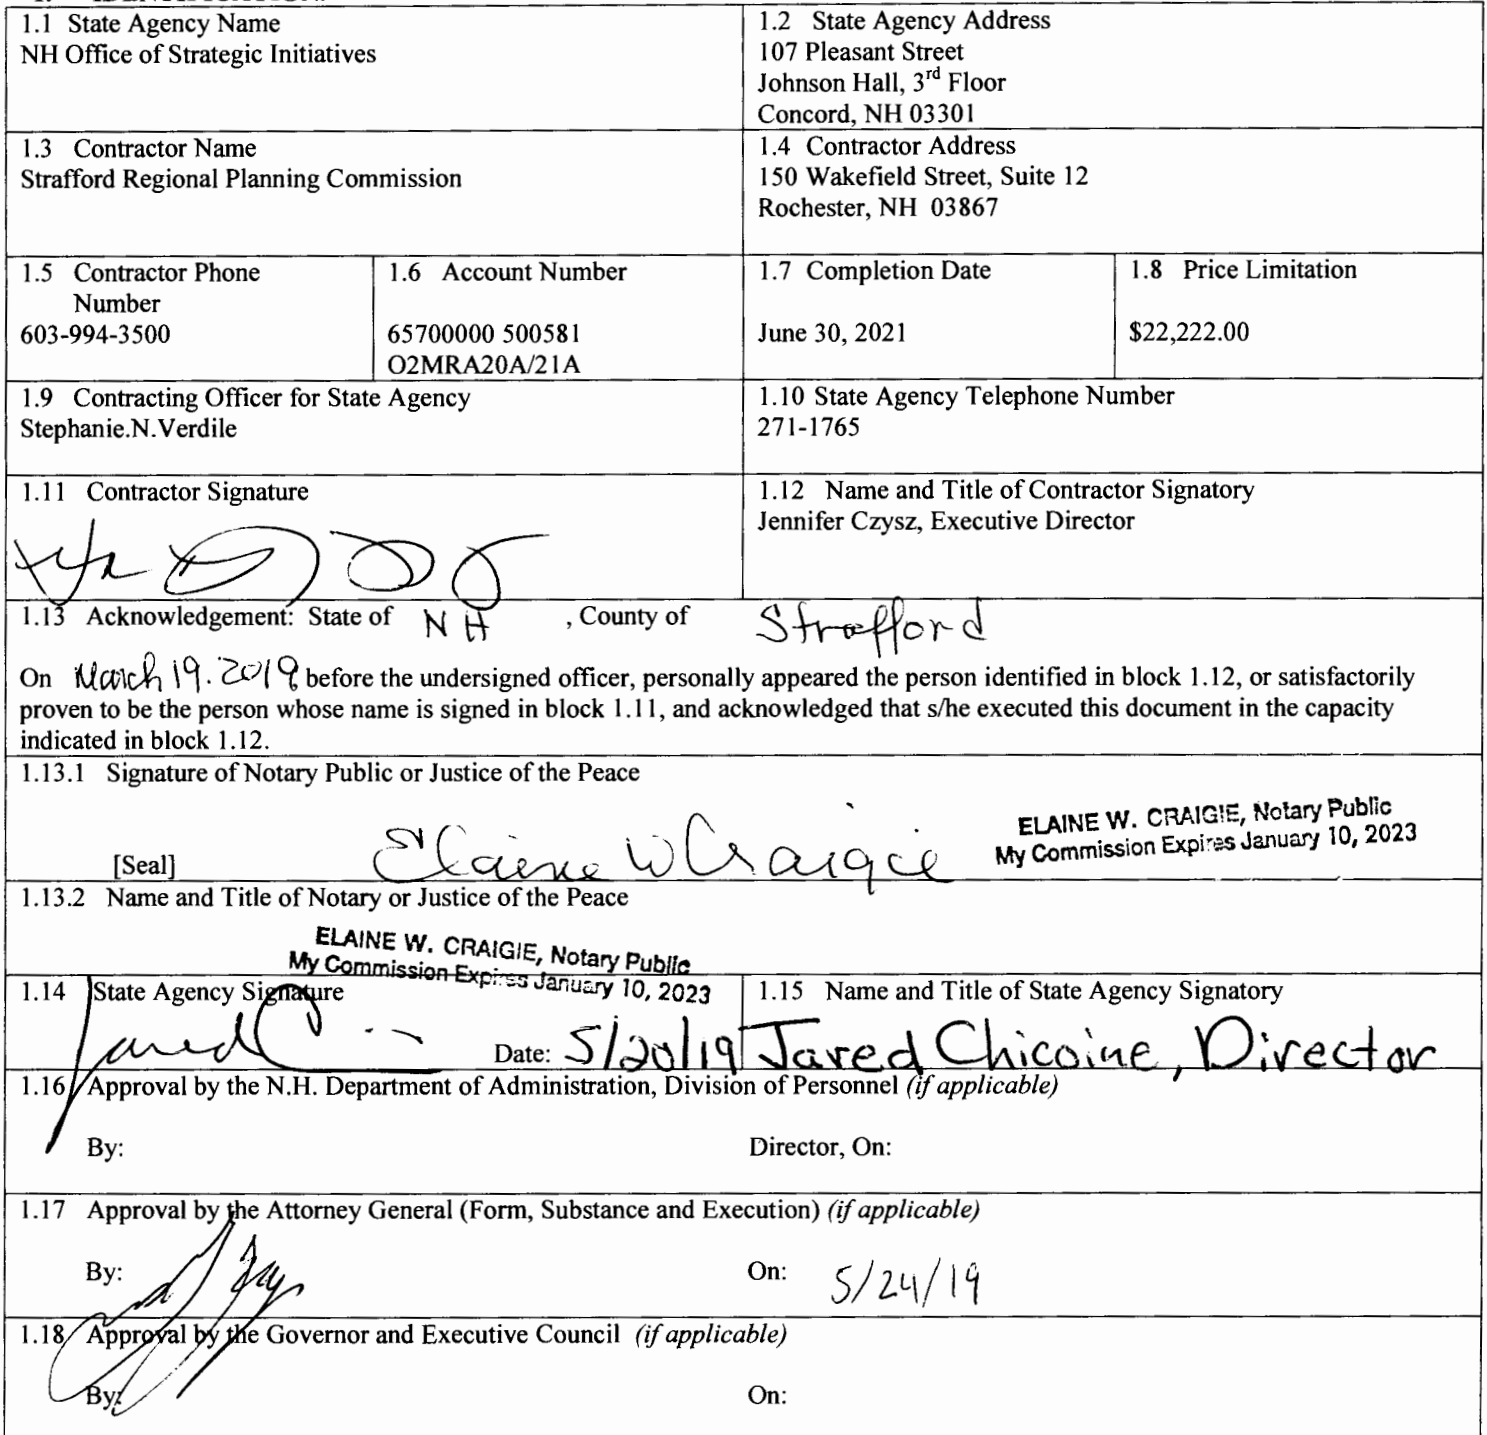 1.1 State Agency Name
NH Office of Strategic Initiatives
1.2 State Agency Address
107 Pleasant Street
Johnson Hall, 3rd Floor
Concord, NH 03301
1.3 Contractor Name
Strafford Regional Planning Commission
1.4 Contractor Address
150 Wakefield Street, Suite 12
Rochester, NH 03867
1.5 Contractor Phone
Number
603-994-3500
1.6 Account Number
65700000 500581
O2MRA20A/21A
1.7 Completion Date
June 30, 2021
1.8 Price Limitation
$22,222.00
1.9 Contracting Officer for State Agency
Stephanie.N.Verdile
1.10 State Agency Telephone Number
271-1765
1.11 Contractor Signature
1.12 Name and Title of Contractor Signatory
Jennifer Czysz, Executive Director
1.13 Acknowledgement: State of NH , County of Strafford
On March 19. 2019 before the undersigned officer, personally appeared the person identified in block 1.12, or satisfactorily
proven to be the person whose name is signed in block 1.11, and acknowledged that s/he executed this document in the capacity
indicated in block 1.12.
1.13.1 Signature of Notary Public or Justice of the Peace
ELAINE W. CRAIGIE, Notary Public
My Commission Expires January 10, 2023
[Seal] Elaine W Craigie
1.13.2 Name and Title of Notary or Justice of the Peace
ELAINE W. CRAIGIE, Notary Public
My Commission Expires January 10, 2023
1.14 State Agency Signature
Jared Date: 5/20/19
1.15 Name and Title of State Agency Signatory
Jared Chicoine, Director
1.16 Approval by the N.H. Department of Administration, Division of Personnel (if applicable)
By: Director, On:
1.17 Approval by the Attorney General (Form, Substance and Execution) (if applicable)
By: On: 5/24/19
1.18 Approval by the Governor and Executive Council (if applicable)
By: On: